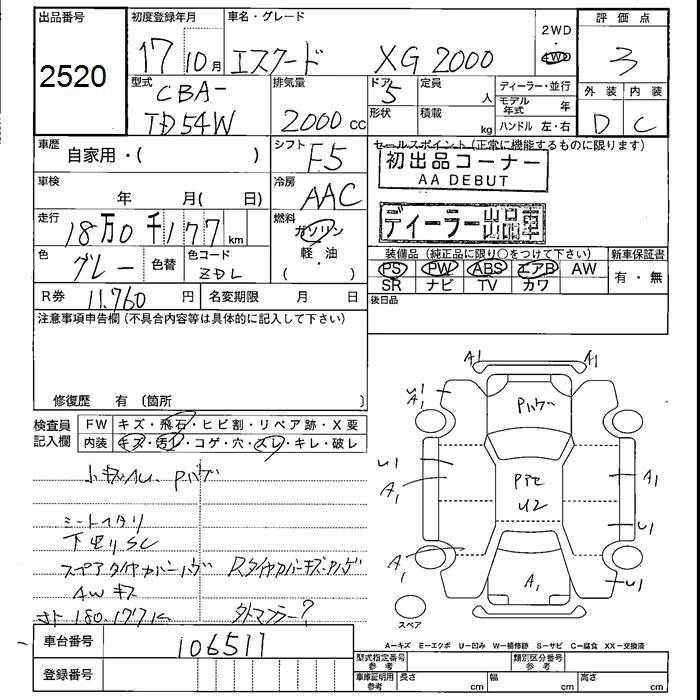 出品番号 初度登録年月 車名・グレード 2WD 評価点
2520 17 10月 エスクード XG 2000 ・ 4WD 3
型式 排気量 ドア 定員 ディーラー・並行 外装 内装
CBA- 5 人 モデル年式 年 D C
TD54W 2000 cc 形状 積載 kg ハンドル 左・右
車歴 シフト セールスポイント(正常に機能するものに限ります)
自家用・( ) F5 初出品コーナー
AA DEBUT
車検 冷房
年 月( 日) AAC
走行 燃料 ディーラー出品車
18万0千177km ガソリン
色 色替 色コード 軽・油 装備品(純正品に限り○をつけて下さい) 新車保証書
グレー ZDL ( ) PS PW ABS エアB AW 有・無
SR ナビ TV カワ
R券 11,760 円 名変期限 月 日 後日品
注意事項申告欄(不具合内容等は具体的に記入して下さい)
修復歴 有(箇所
検査員 FW キズ・飛石・ヒビ割・リペア跡・X要
記入欄 内装 キズ・汚レ・コゲ・穴・スレ・キレ・破レ
小キズAU. Pハゲ
シートヘタリ
下廻りSC
スペアタイヤカバーハゲ Rタイヤカバーキズハゲ
AWキズ
180.177K 外マフラー?
A1 A1
U1 A1 Pハゲー
U1 A1 U2 A1
U1
A1 A1 U1
スペア
A-キズ E-エクボ U-凹み W-補修跡 S-サビ C-腐食 XX-交換済
車台番号 106511
登録番号
型式指定番号 参考 類別区分番号 参考
車庫証明用 参考 長さ cm 幅 cm 高さ cm